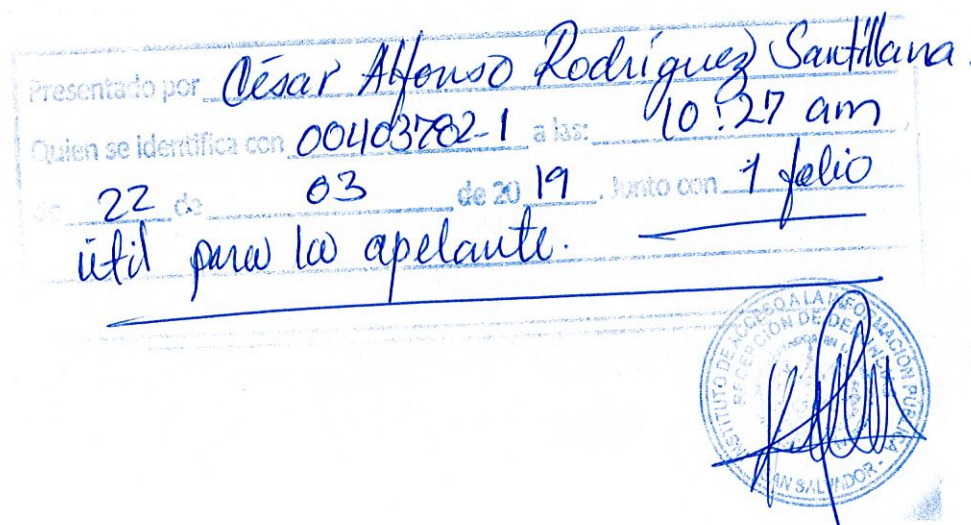 Presentado por César Alfonso Rodríguez Santillana.
Quien se identifica con 00403782-1 a las: 10:27 am
de 22 de 03 de 20 19. Junto con 1 folio
útil para la apelante.
INSTITUTO DE ACCESO A LA INFORMACIÓN PUBLICA
RECEPCIÓN DE DENUNCIAS
SAN SALVADOR